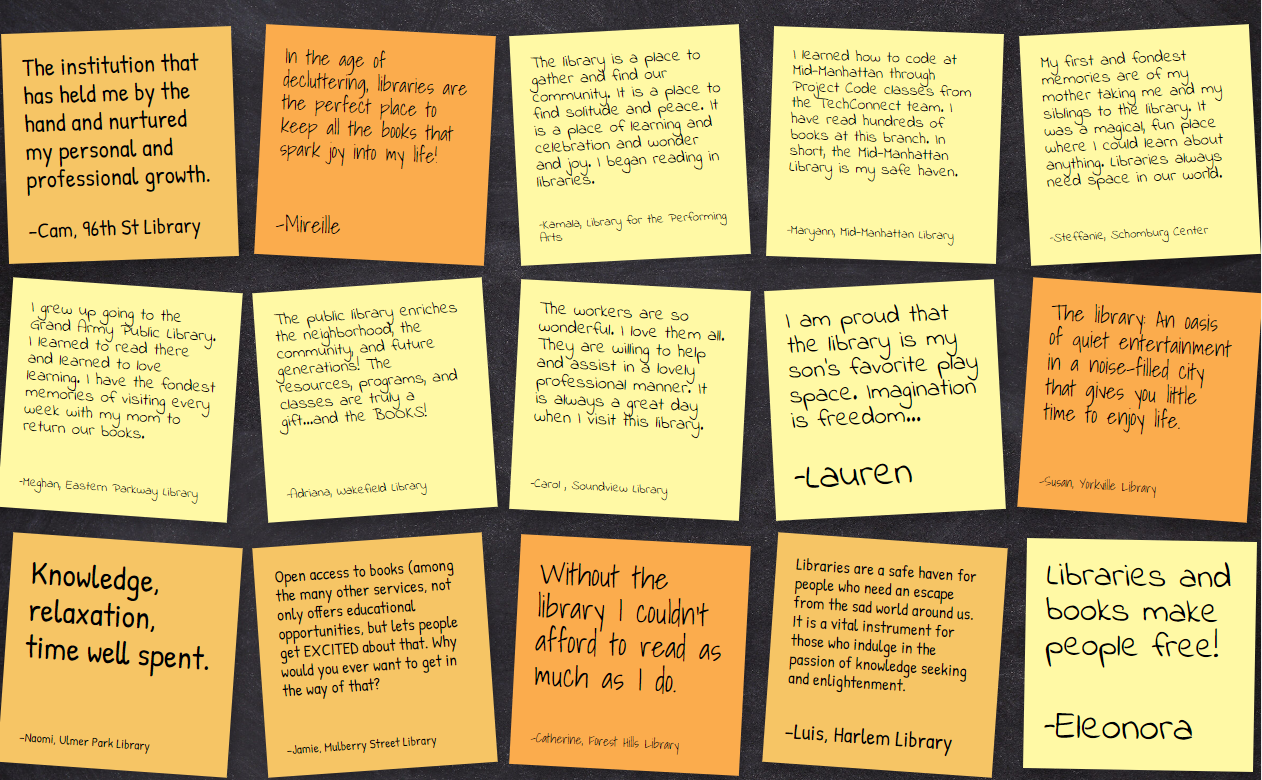 The institution that
has held me by the
hand and nurtured
my personal and
professional growth.
-Cam, 96th St Library
In the age of
decluttering, libraries are
the perfect place to
keep all the books that
spark joy into my life!
-Mireille
The library is a place to
gather and find our
community. It is a place to
find solitude and peace. It
is a place of learning and
celebration and wonder
and joy. I began reading in
libraries.
-Kamala, Library for the Performing
Arts
I learned how to code at
Mid-Manhattan through
Project Code classes from
the TechConnect team. I
have read hundreds of
books at this branch. In
short, the Mid-Manhattan
Library is my safe haven.
-Maryann, Mid-Manhattan Library
My first and fondest
memories are of my
mother taking me and my
siblings to the library. It
was a magical, fun place
where I could learn about
anything. Libraries always
need space in our world.
-Steffanie, Schomburg Center
I grew up going to the
Grand Army Public Library.
I learned to read there
and learned to love
learning. I have the fondest
memories of visiting every
week with my mom to
return our books.
-Meghan, Eastern Parkway Library
The public library enriches
the neighborhood, the
community, and future
generations! The
resources, programs, and
classes are truly a
gift...and the BOOKS!
-Adriana, Wakefield Library
The workers are so
wonderful. I love them all.
They are willing to help
and assist in a lovely
professional manner. It
is always a great day
when I visit this library.
-Carol , Soundview Library
I am proud that
the library is my
son's favorite play
space. Imagination
is freedom...
-Lauren
The library: An oasis
of quiet entertainment
in a noise-filled city
that gives you little
time to enjoy life.
-Susan, Yorkville Library
Knowledge,
relaxation,
time well spent.
-Naomi, Ulmer Park Library
Open access to books (among
the many other services, not
only offers educational
opportunities, but lets people
get EXCITED about that. Why
would you ever want to get in
the way of that?
-Jamie, Mulberry Street Library
Without the
library I couldn't
afford to read as
much as I do.
-Catherine, Forest Hills Library
Libraries are a safe haven for
people who need an escape
from the sad world around us.
It is a vital instrument for
those who indulge in the
passion of knowledge seeking
and enlightenment.
-Luis, Harlem Library
Libraries and
books make
people free!
-Eleonora